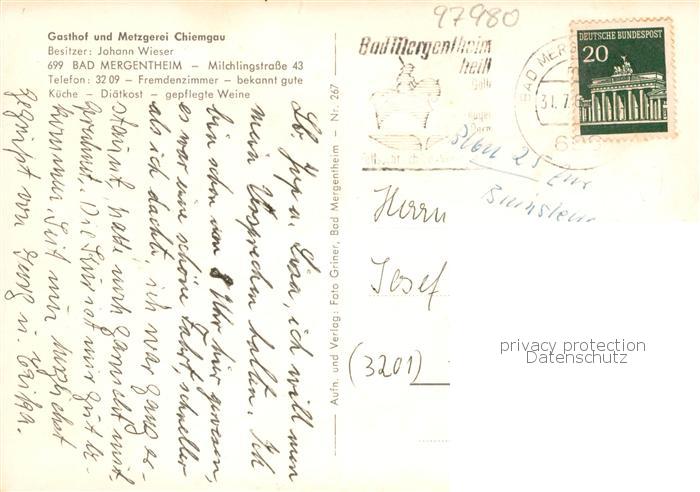 97980
Gasthof und Metzgerei Chiemgau
Besitzer: Johann Wieser
699 BAD MERGENTHEIM – Milchlingstraße 43
Telefon: 3209 – Fremdenzimmer – bekannt gute
Küche – Diätkost – gepflegte Weine
Bad Mergentheim
heilt
Galle
BAD MERG
31.7.6
DEUTSCHE BUNDESPOST
20
Aufn. und Verlag: Foto Griner, Bad Mergentheim – Nr. 267
ich will nun
mein Versprechen halten. Ich
bin schon um 8 Uhr hier gewesen,
es war eine schöne Fahrt, schneller
als ich dachte, ich war ganz er-
staunt, hatte noch garnicht mit
gerechnet. Die Kur ist mir gut be-
kommen. Seid nun herzlichst
gegrüßt von u.
Herrn
Josef
(3201)
privacy protection
Datenschutz